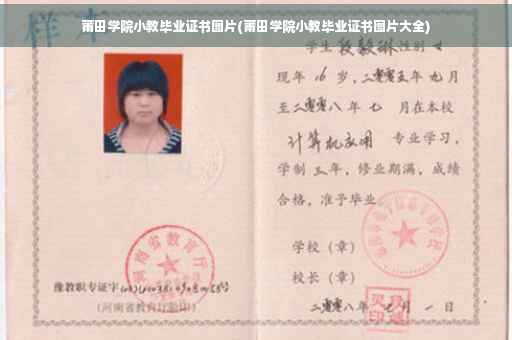 莆田学院小教毕业证书图片(莆田学院小教毕业证书图片大全)
样本
学生段毅琳性别女
现年16岁,二零零五年九月
至二零零八年七月在本校
计算机应用 专业学习,
学制三年,修业期满,成绩
合格,准予毕业
学校(章)
校长(章)
二零零八年七月一日
河南省教育厅
豫教职专证字
(河南省教育厅验印)